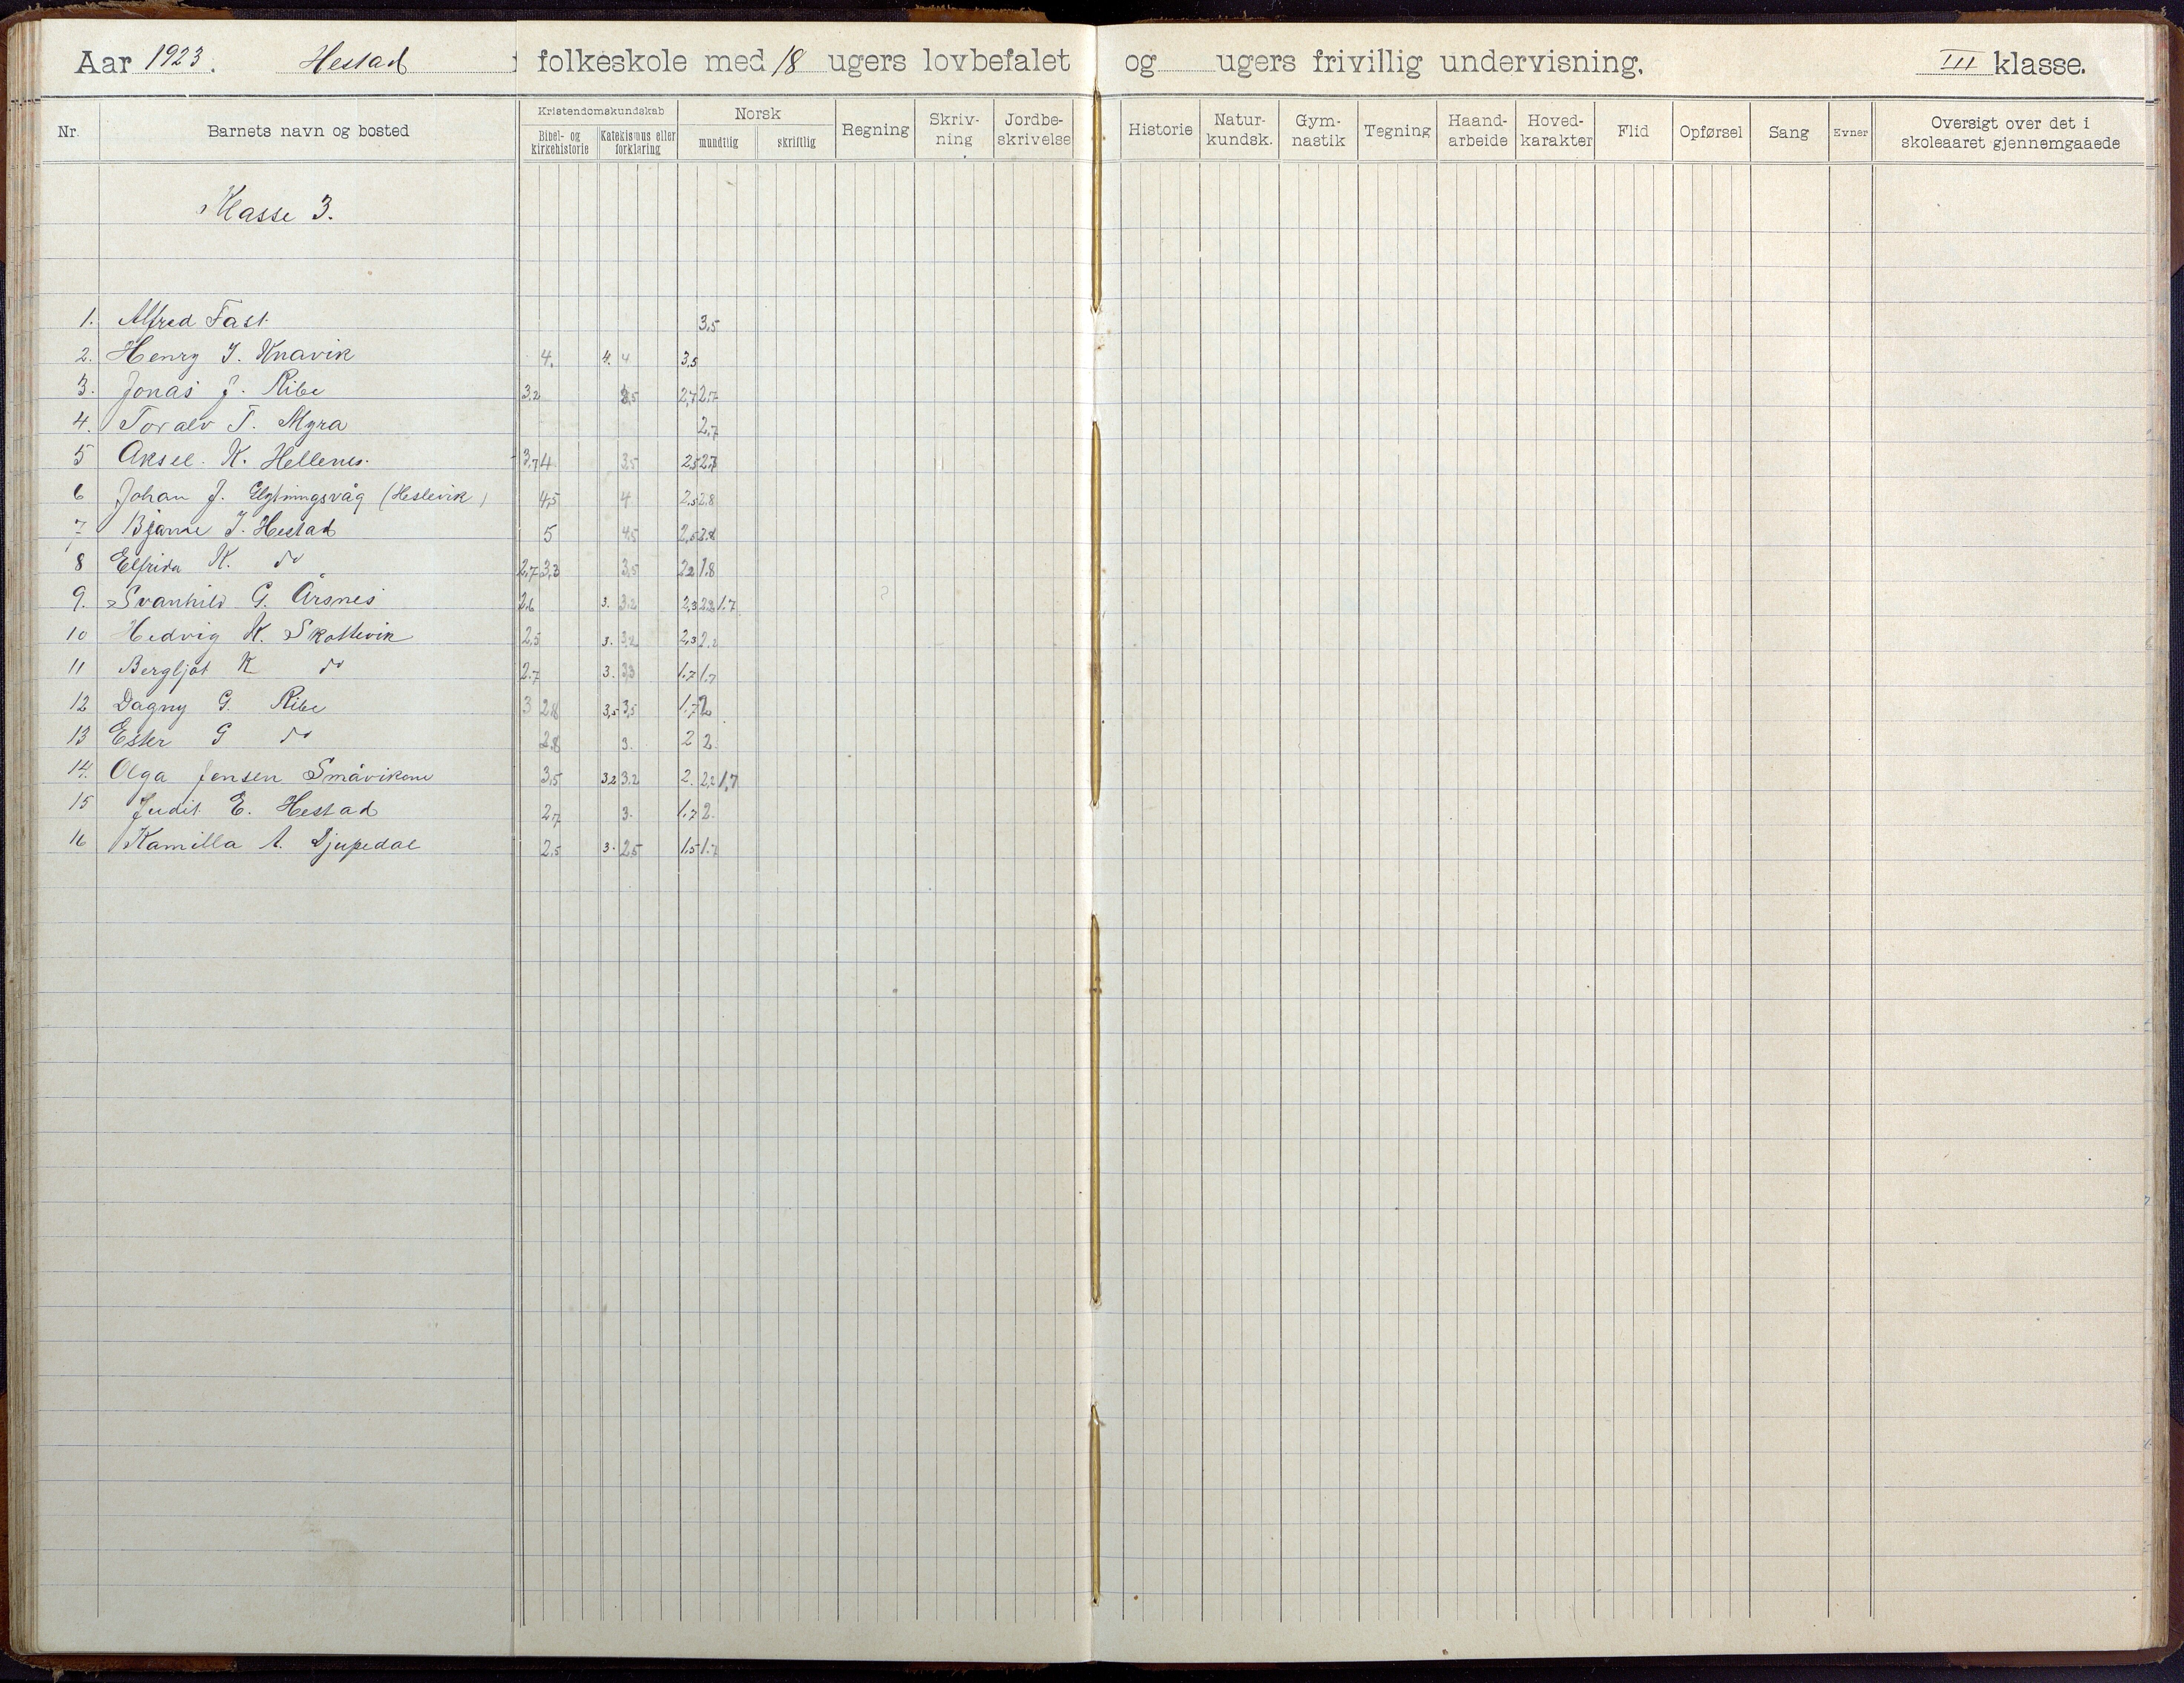 Aar 1923. Hestad folkeskole med 18 ugers lovbefalet og ugers frivillig undervisning. III klasse.
Nr. Barnets navn og bosted Kristendomskundskab Bibel- og kirkehistorie Katekismus eller forklaring Norsk mundtlig skriftlig Regning Skriv-ning Jordbe-skrivelse Historie Natur-kundsk. Gym-nastik Tegning Haand-arbeide Hoved-karakter Flid Opførsel Sang Evner Oversigt over det i skoleaaret gjennemgaaede
Klasse 3.
1. Alfred Fast 3,5
2. Henry J. Knavik 4. 4. 4 3,5
3. Jonas J. Ribe 3,2 2,7 2,7
4. Toralv T. Myra 2,7
5 Aksel K. Hellenes 3,7 4 3,5 2,5 2,7
6 Johan J. (Heslevik) 4,5 4 2,5 2,8
7 Bjarne J. Hestad 5 4,5 2,5
8 Elfrida K. do 2,7 3,3 3,5 2,2 1,8
9. Svanhild G. Årsnes 2,6 3. 3,2 2,3 2,2 1,7
10 Hedvig K. Skottevik 2,5 3. 3,2 2,3 2,2
11 Bergljot K do 2,7 3. 3,3 1,7 1,7
12 Dagny G. Ribe 3 2,8 3,5 3,5 1,7 2
13 Ester G do 2,8 3. 2 2
14. Olga Jensen Småvikene 3,5 3,2 3,2 2. 2,2 1,7
15 Judit E. Hestad 2,7 3. 1,7 2.
16 Kamilla A. Djupedal 2,5 3. 2,5 1,5 1,7